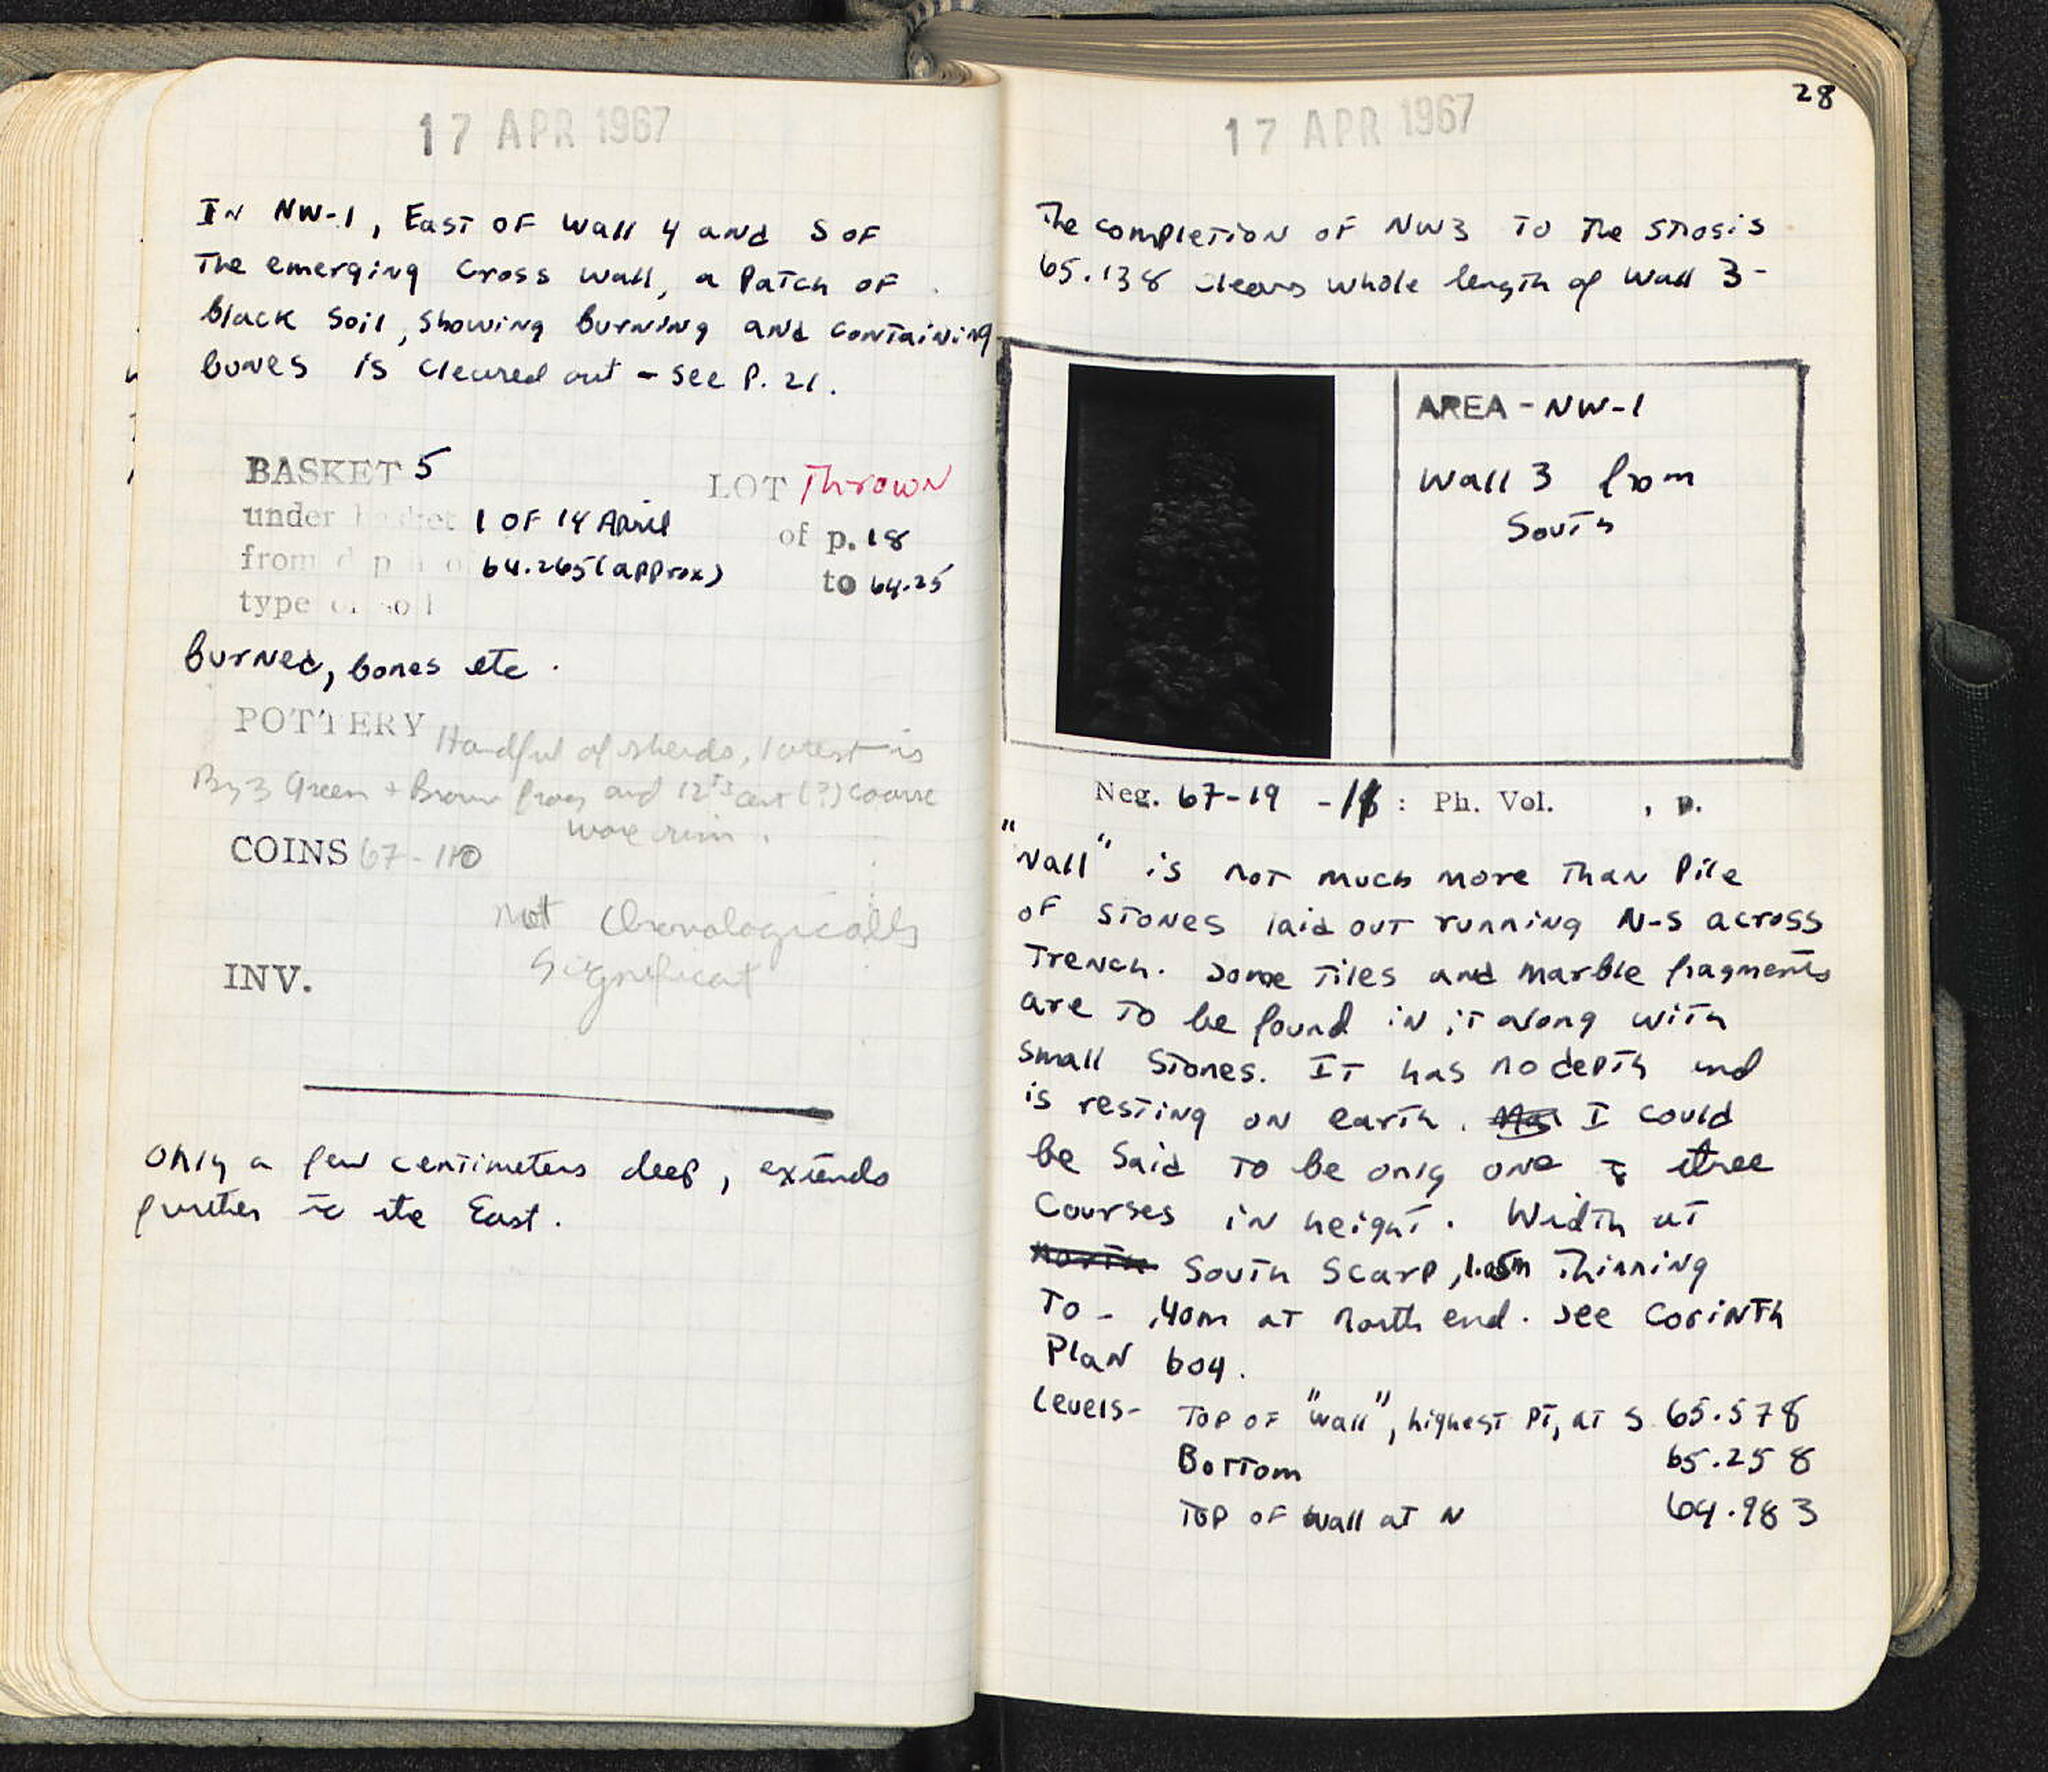 17 APR 1967
In NW-1, East of Wall 4 and S of
The emerging Cross Wall, a Patch of
black soil, showing burning and containing
bones is cleared out - see P. 21.
BASKET 5
LOT Thrown
under basket 1 OF 14 April
of p. 18
from depth of 64.265 (approx)
to 64.25
type of soil
burned, bones etc.
POTTERY Handful of sherds, latest is
Byz Green + Brown frag and 12th cent (?) coarse
ware rim.
COINS 67-110
not Chronologically
Significat
INV.
Only a few centimeters deep, extends
further to the East.
28
17 APR 1967
The completion of NW3 to the stosis
65.138 clears whole length of Wall 3-
AREA - NW-1
Wall 3 from
South
Neg. 67-19 - : Ph. Vol. , p.
"Wall" is not much more than Pile
of stones laid out running N-S across
Trench. Some tiles and marble fragments
are to be found in it along with
small stones. It has no depth and
is resting on earth. I could
be said to be only one to three
Courses in height. Width at
North South Scarp, 1.05m Thinning
To - .40m at North end. See Corinth
Plan 604.
Levels- Top of "Wall", highest Pt, at S 65.578
Bottom 65.258
Top of Wall at N 64.983